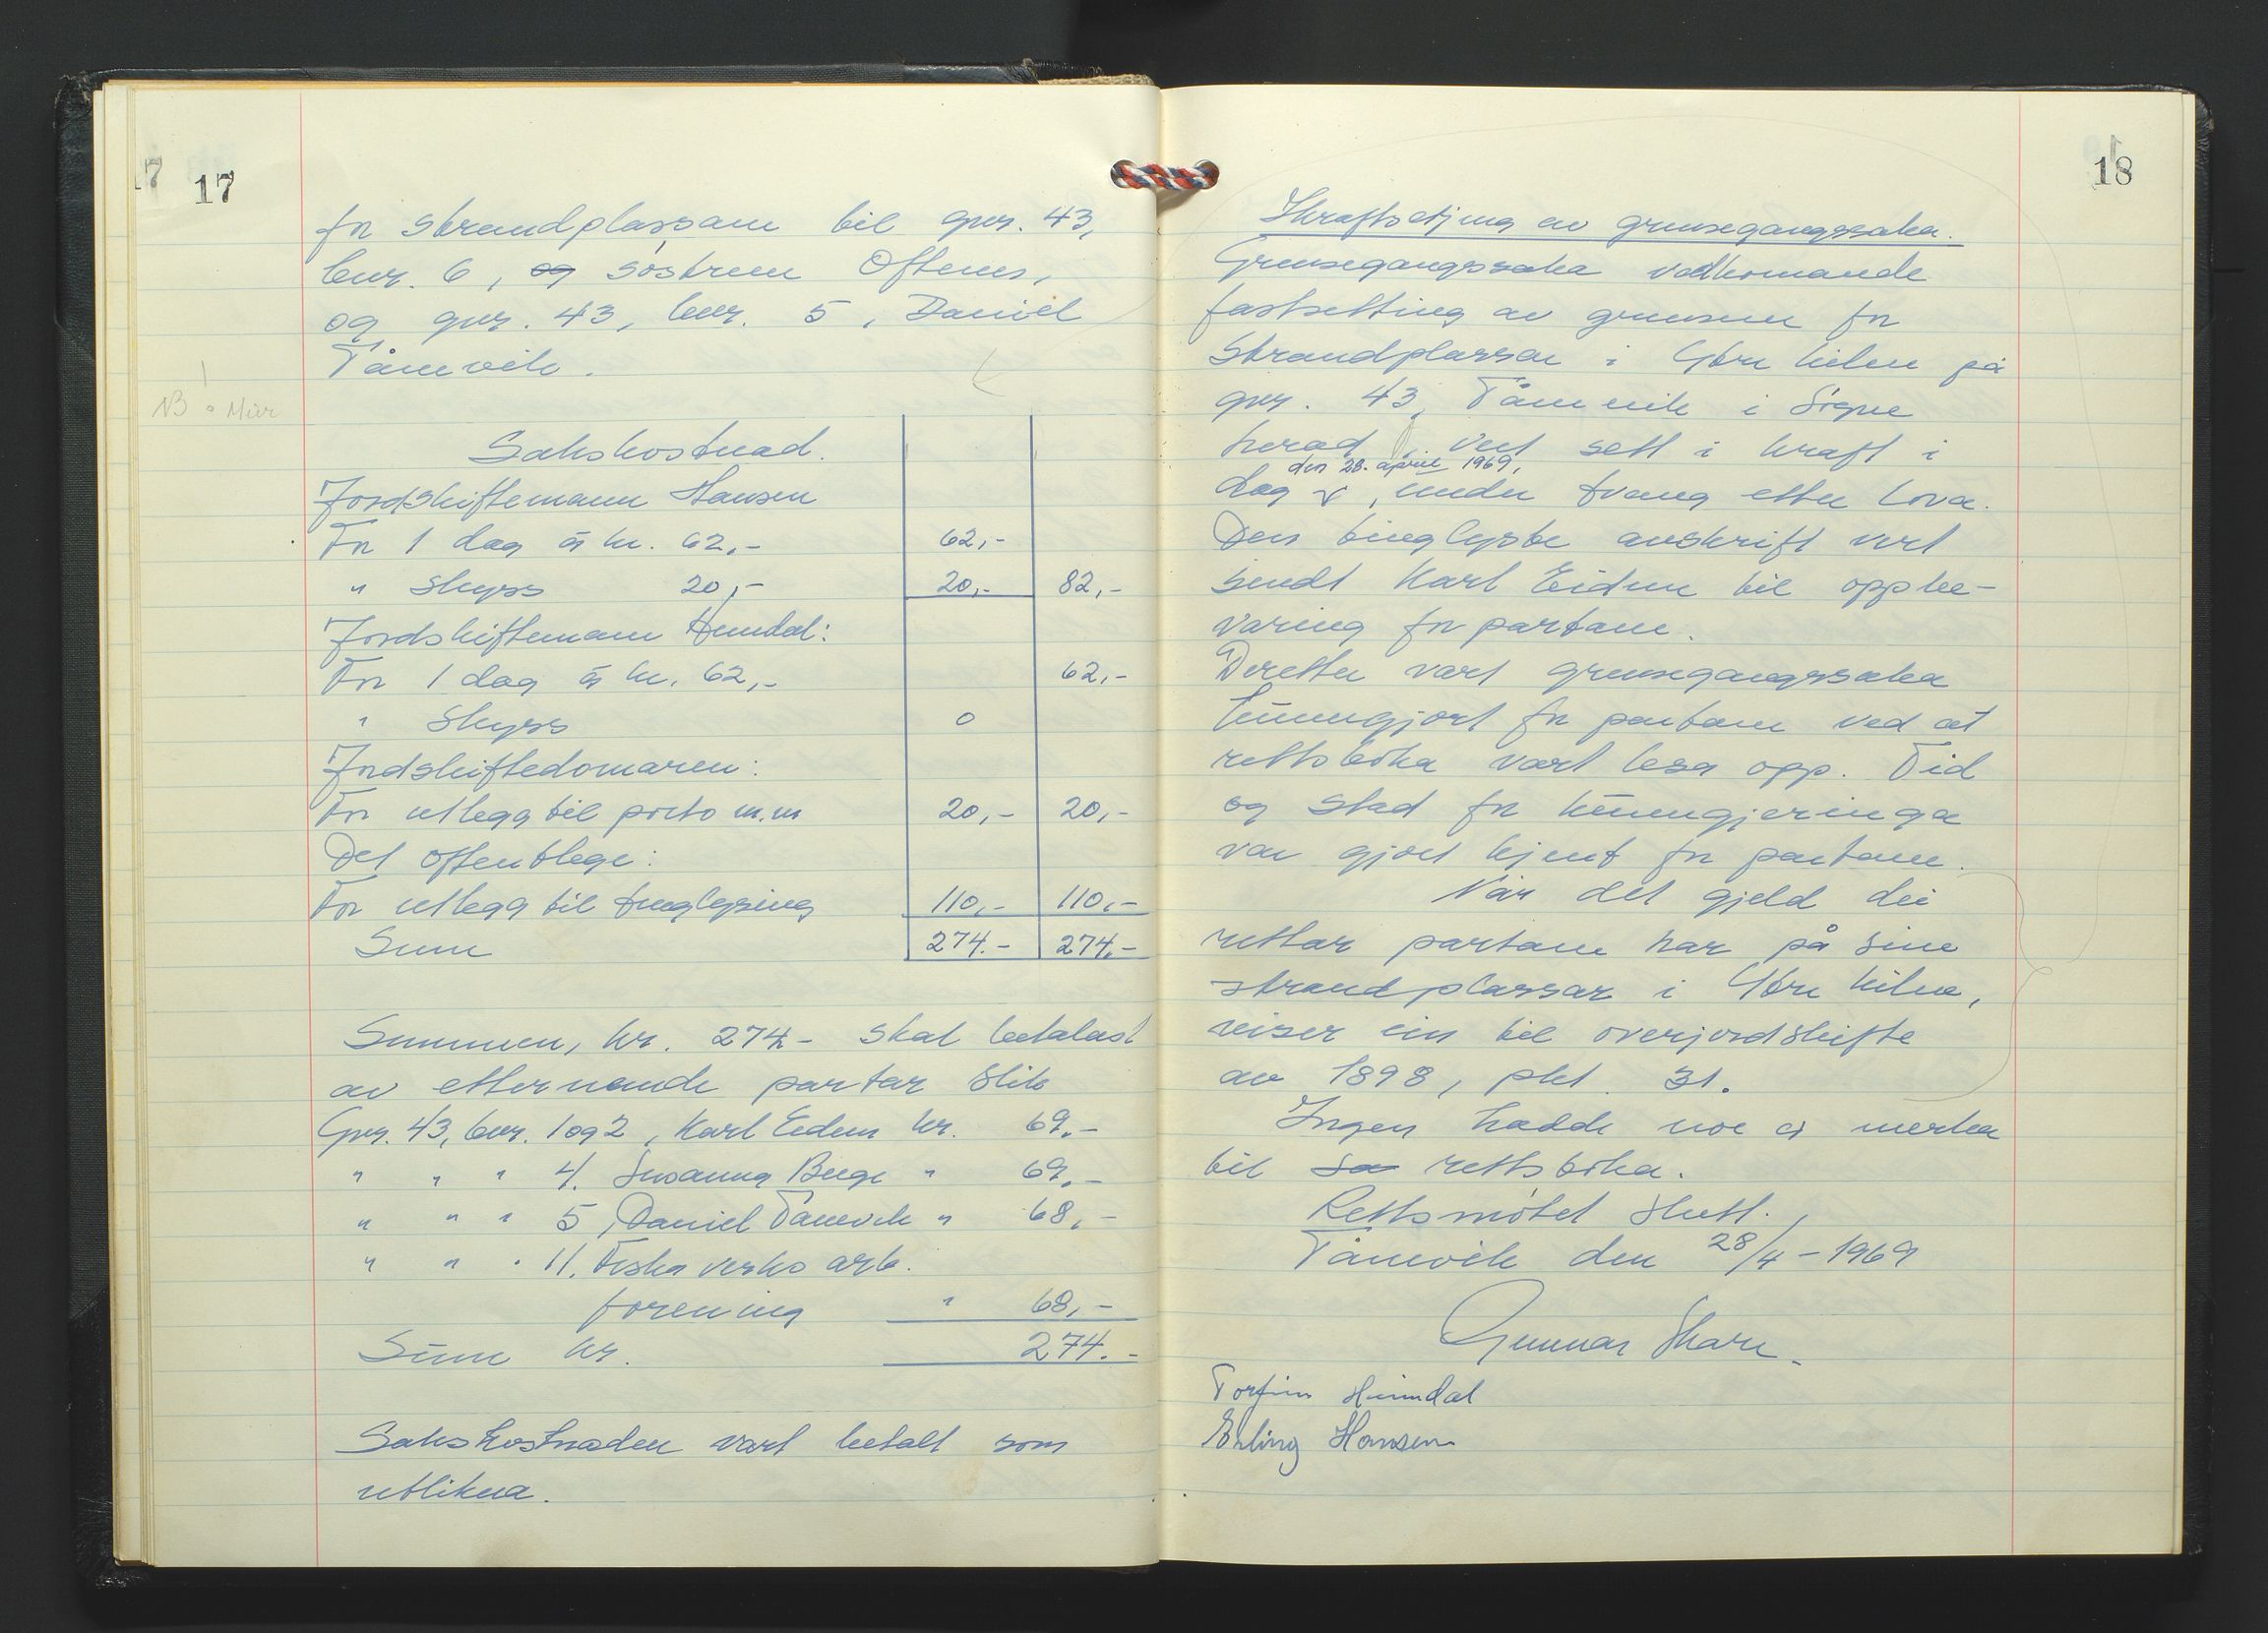 17
for strandplassane til gnr. 43,
bnr. 6, og søstrene Oftenes,
og gnr. 43, bnr. 5, Daniel
Tånevik.
NB
Sakskostnad.
Jordskiftemann Hansen
For 1 dag á kr. 62,- 62,-
" skyss 20,- 20,- 82,-
Jordskiftemann Heimdal:
For 1 dag á kr. 62,- 62,-
" skyss 0
Jordskiftedomaren:
For utlegg til porto m.m 20,- 20,-
Det offentlege:
For utlegg til tinglysing 110,- 110,-
Sum 274.- 274.-
Summen, kr. 274.- skal betalast
av etternemnde partar slik
Gnr. 43, bnr. 1 og 2, Karl Eidem kr. 69.-
" " " 4. Susanna Berge " 69.-
" " " 5, Daniel Tånevik " 68,-
" " " 11. Fiska verks arb.
forening " 68,-
Sum kr. 274.-
Sakskostnaden vart betalt som
utlikna.
18
Ikraftsetjing av grensegangssaka.
Grensegangssaka vedkomande
fastsetting av grensene for
strandplassar i Ytre kilen på
gnr. 43, Tånevik i Søgne
herad, vert sett i kraft i
den 28. april 1969,
dag , under tvang etter lova.
Den tinglyste avskrift vert
sendt Karl Eidem til oppbe-
varing for partane.
Deretter vart grensegangssaka
kunngjort for partane ved at
rettsboka vart lesa opp. Tid
og stad for kunngjeringa
var gjort kjent for partane.
Når det gjeld dei
rettar partane har på sine
strandplassar i Ytre kilen,
viser ein til overjordskifte
av 1898, pkt. 31.
Ingen hadde noe å merka
til sa rettsboka.
Rettsmøtet slutt.
Tånevik den 28/4-1969
Gunnar Skare.
Torfinn Heimdal
Erling Hansen